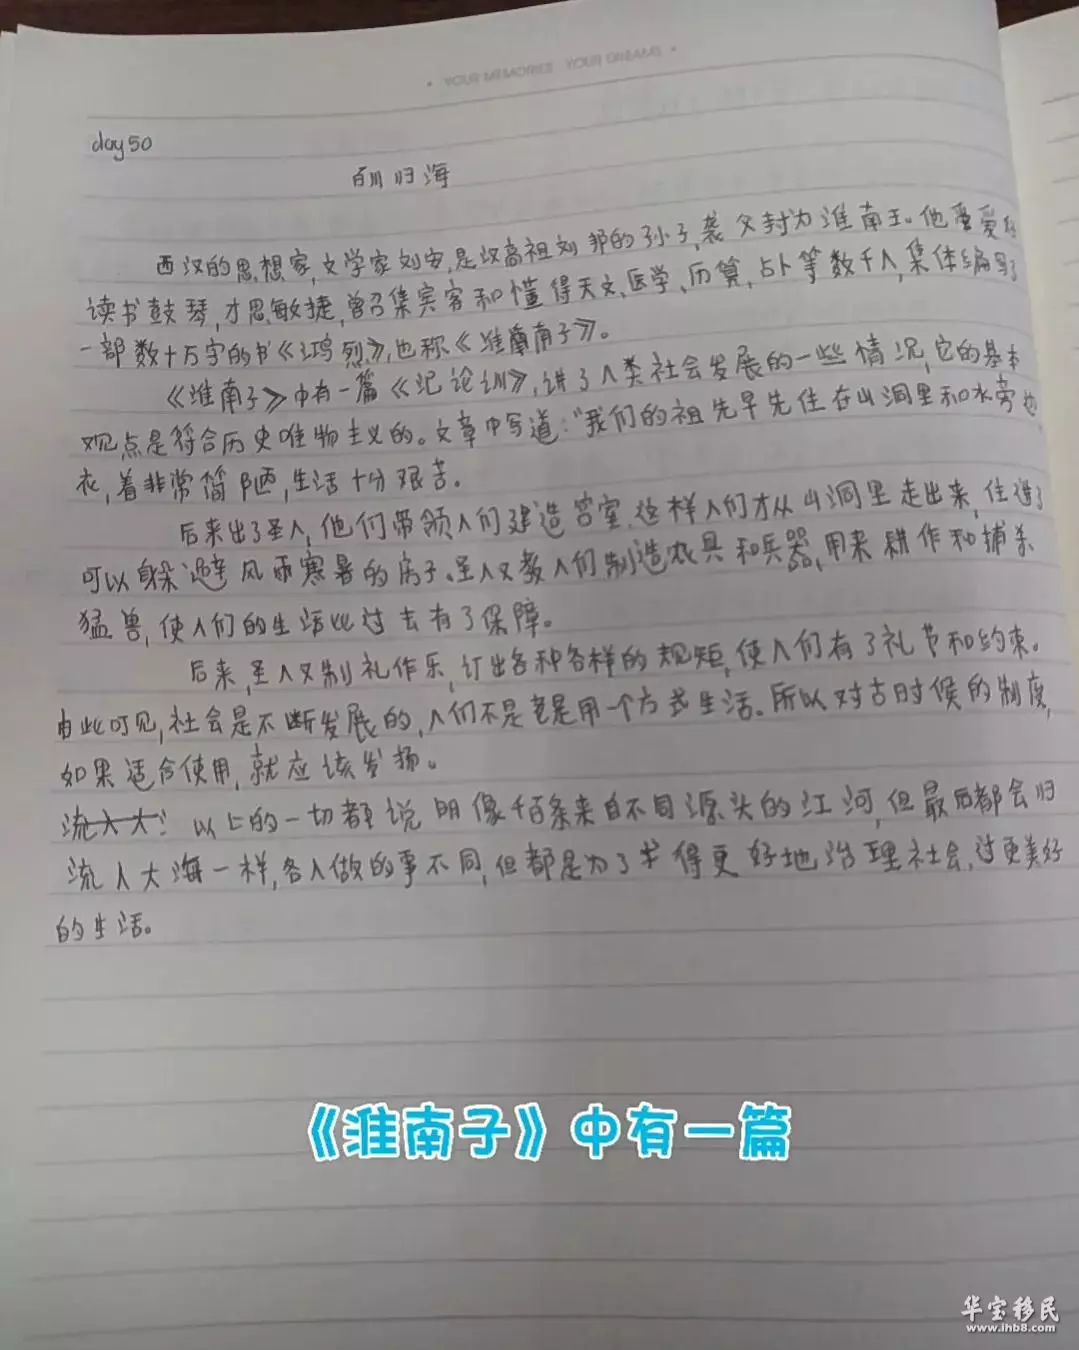 • YOUR MEMORIES YOUR DREAMS •
day 50
百川归海
西汉的思想家,文学家刘安,是汉高祖刘邦的孙子,袭父封为淮南王。他爱
读书鼓琴,才思敏捷,曾召集宾客和懂得天文、医学、历算,占卜等数千人,集体编写了
一部数十万字的书《鸿烈》,也称《淮南子》。
《淮南子》中有一篇《氾论训》,讲了人类社会发展的一些情况,它的基本
观点是符合历史唯物主义的。文章中写道:“我们的祖先早先住在山洞里和水旁边
衣,着非常简陋,生活十分艰苦。
后来出了圣人,他们带领人们建造宫室,这样人们才从山洞里走出来,住进了
可以躲避风雨寒暑的房子。圣人又教人们制造农具和兵器,用来耕作和捕杀
猛兽,使人们的生活比过去有了保障。
后来,圣人又制礼作乐,订出各种各样的规矩,使人们有了礼节和约束。
由此可见,社会是不断发展的,人们不是老是用一个方式生活。所以对古时候的制度,
如果适合使用,就应该发扬。
以上的一切都说明像千百条来自不同源头的江河,但最后都会归
流入大海一样,各人做的事不同,但都是为了求得更好地治理社会,过更美好
的生活。
《淮南子》中有一篇
华宝移民
www.ihb8.com